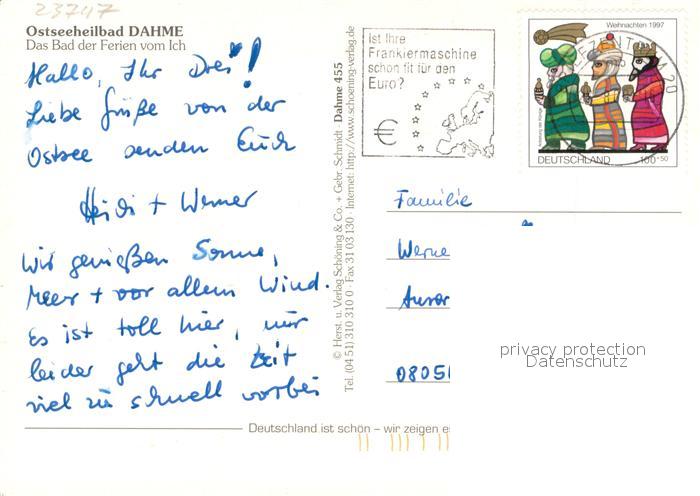 23747
Ostseeheilbad DAHME
Das Bad der Ferien vom Ich
Hallo, Ihr Drei!
Liebe Grüße von der
Ostsee senden Euch
Heidi + Werner
Wir genießen Sonne,
Meer + vor allem Wind.
Es ist toll hier, nur
leider geht die Zeit
viel zu schnell vorbei
Deutschland ist schön – wir zeigen es
© Herst. u. Verlag Schöning & Co. + Gebr. Schmidt · Dahme 455
Tel. (04 51) 310 310 0 · Fax 31 03 130 · Internet: http://www.schoening-verlag.de
Ist Ihre
Frankiermaschine
schon fit für den
Euro?
€
Weihnachten 1997
DEUTSCHLAND 100+50
BRIEFZENTRUM
20
Familie
Werne
08051
privacy protection
Datenschutz